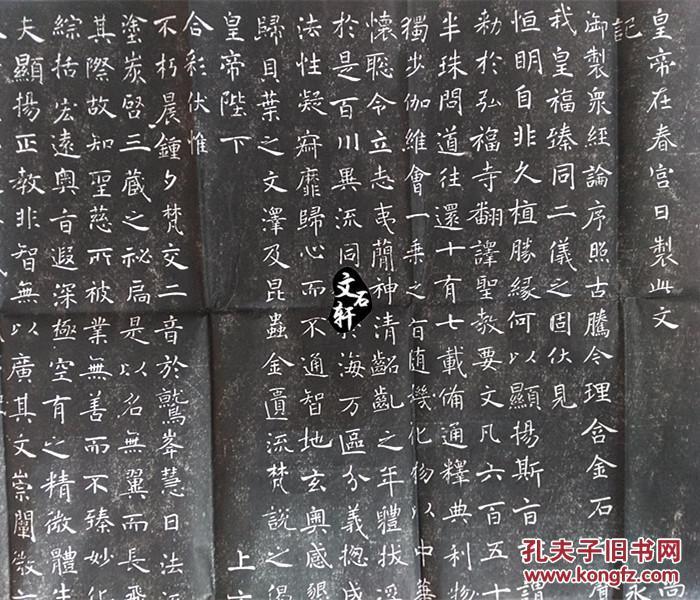 尚
永
皇帝在春宮日製此文
記
御製衆經論序照古騰今理含金石
我皇福臻同二儀之固伏見
恒明自非久植勝緣何以顯揚斯旨謂
勅於弘福寺翻譯聖教要文凡六百五十
半珠問道往還十有七載備通釋典利物
獨步伽維會一乘之旨隨機化物以中華
懷聰令立志夷簡神清齠齔之年體拔浮
於是百川異流同於海万區分義揔成
法性凝寂靡歸心而不通智地玄奧感懇
歸貝葉之文澤及昆蟲金匱流梵說之偈
皇帝陛下上
合彩伏惟
不朽晨鍾夕梵交二音於鷲峯慧日法
塗炭啓三藏之祕扃是以名無翼而長飛
其際故知聖慈所被業無善而不臻妙化
綜括宏遠奧旨遐深極空有之精微體生
夫顯揚正教非智無以廣其文崇闡微
文石軒
孔夫子旧书网
www.kongfz.com